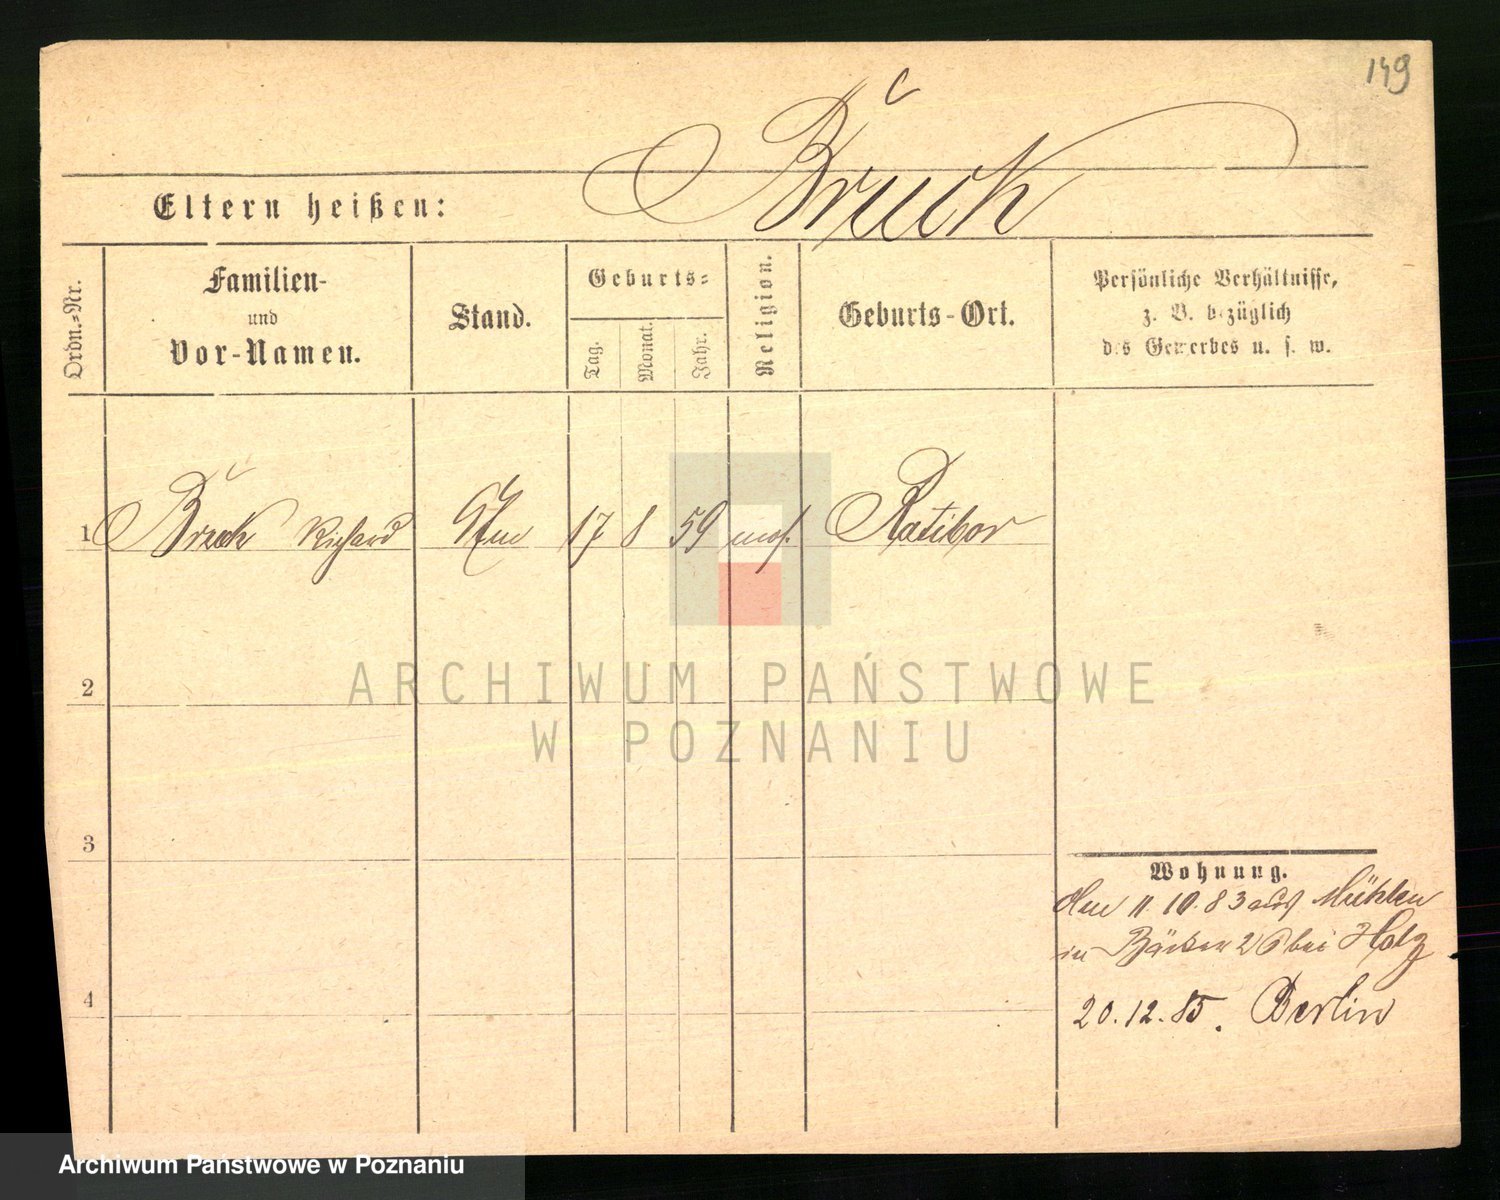 149
Brück
Eltern heißen:
Ordn.-Nr.
Familien-
und
Vor-Namen.
Stand.
Geburts-
Tag.
Monat.
Jahr.
Religion.
Geburts-Ort.
Persönliche Verhältnisse,
z. B. bezüglich
des Gewerbes u. s. w.
1 Brück Richard 17 8 59 mos. Ratibor
2
ARCHIWUM PAŃSTWOWE
W POZNANIU
3
Wohnung.
11. 10. 83 aus Mühlen
in Bäcker 26 bei
4
20. 12. 85. Berlin
Archiwum Państwowe w Poznaniu